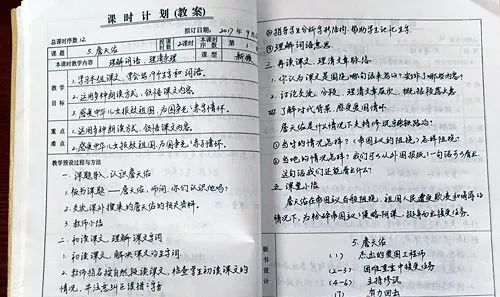 课 时 计 划 (教 案)
总课时序数 12
拟订日期: 2017 年 9 月
课题 5.詹天佑
课时 2课时
本课时序数 第 1
本课时教学内容 理解词语、理清条理
课型 新授
教学目标
1. 学习本组课文,学会写个生字和词语。
2. 运用多种朗读方式,领悟课文内容。
3. 感受中华儿女报效祖国,为国争光
重点难点
1. 运用多种朗读方式,领悟课文内容。
2. 感受中华儿女报效祖国,为国争光
教学预设过程与方法
一、课题导入,认识詹天佑
1. 板书课题——詹天佑,师问:你们认识他吗?
2. 交流课外搜集的詹天佑的相关资料。
3. 教师小结
二、初读课文,理解课文字词
1. 初读课文,解决课文的生字词
2. 教师指名按自然段读课文,检查学生初读课文的
情况,并注意纠正读错字音
②指导学生分析字形结构,帮助学生记忆生字
③理解词语意思
三、再读课文,理清文章脉络
1. 你认为课文是围绕哪句话来写的?安排了哪些内容?
2. 讨论交流,分段,理清文章层次,概括段落大意
四、了解时代背景,感受爱国情怀
詹天佑是什么情况下主持修筑
①当时的情况怎样?(帝国主义的阻挠)怎样阻挠?
②当地的情况怎样?我们可以从外国报纸一句话可以看出
这句话我们还能看出什么?
五、课堂小结
詹天佑在帝国主义百般阻挠,祖国人民遭受欺凌和嘲笑的
情况下,为粉碎帝国主义侵略阴谋,挺身而出接受任务。
板书设计
5. 詹天佑
(1) 杰出的爱国工程师
(2-3) 困难重重中接受任务
(4-6) 主持修筑
(7) 有力回击